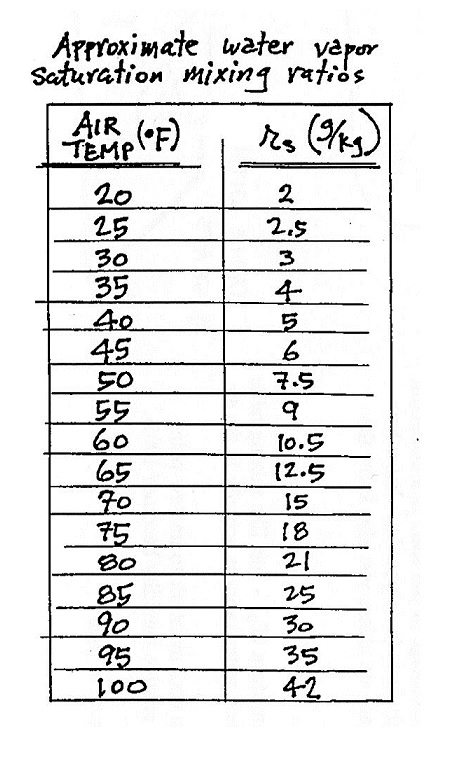 Approximate water vapor
saturation mixing ratios
AIR TEMP (°F) rs (g/kg)
20 2
25 2.5
30 3
35 4
40 5
45 6
50 7.5
55 9
60 10.5
65 12.5
70 15
75 18
80 21
85 25
90 30
95 35
100 42